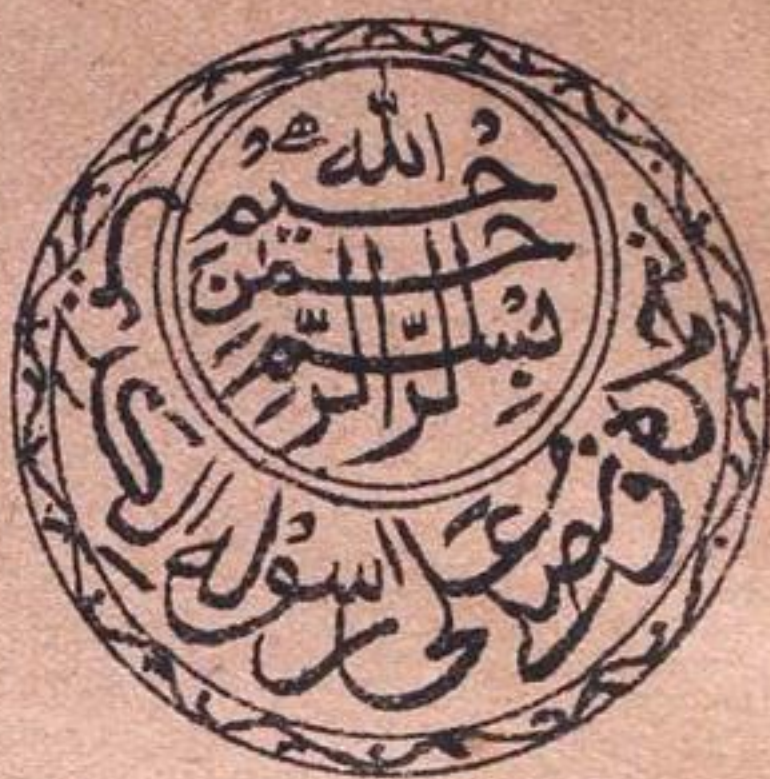 بِسْمِ اللهِ الرَّحْمٰنِ الرَّحِيْمِ
نحمده ونصلي على رسوله الكريم